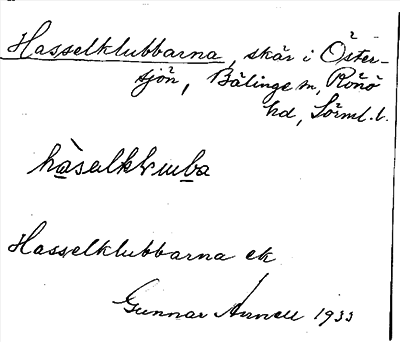 Hasselklubbarna, skär i Öster-
sjön, Bälinge sn, Rönö
hd, Sörml. l.
Hasselklubbarna ek
Gunnar Arnell 1933